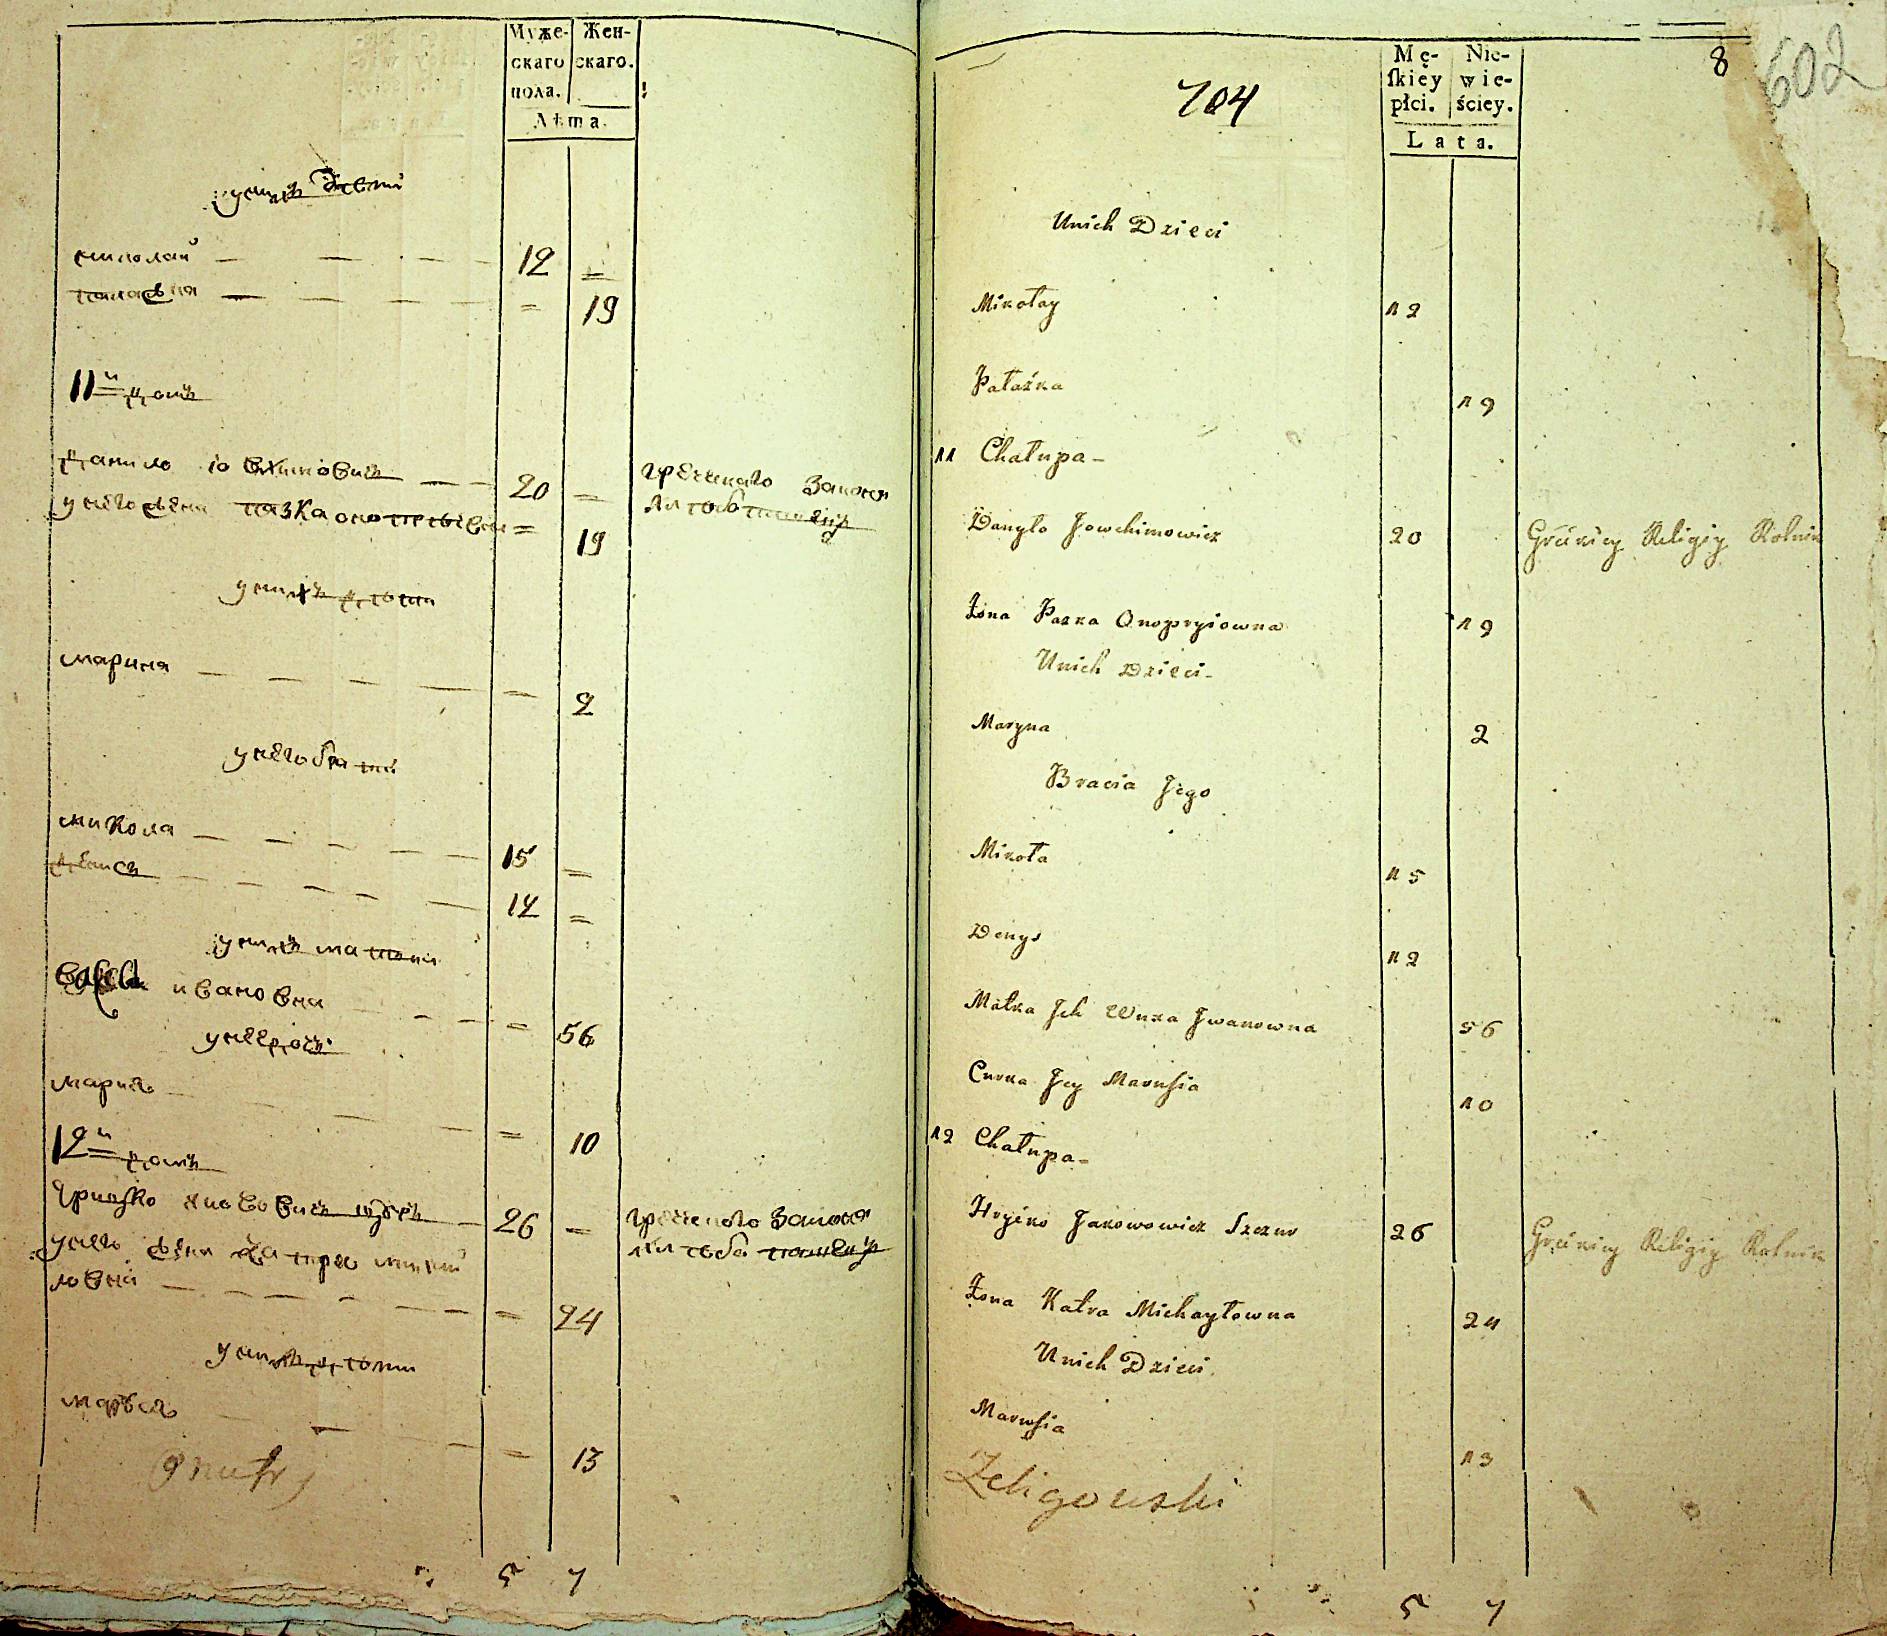 Муже-
скаго
пола.
Жен-
скаго.
Лѣта.
унихъ дѣти
николай 12 =
палажка = 19
11й домъ
данило 20 = греческаго закона
унего жена пазка онопрѣевна = 19
унихъ дѣти
марина = 2
унего братя
микола 15 =
денисъ 12 =
унихъ мати
ивановна = 56
унее дочь
марися = 10
12й домъ
грицко 26 = греческаго закона
унего жена катря михай
ловна = 24
унихъ дѣти
маруся = 13
5 7
8
602
704
Mę-
ſkiey
płci.
Nie-
wie-
ściey.
Lata.
Unich Dzieci
Mikołay 12
Pałażka 19
11 Chałupa-
Danyło Jowchimowicz 20 Gręckiey Religiy Rolnik
Żona Pazka Onopryiowna 19
Unich Dzieci-
Maryna 2
Bracia Jego
Mikoła 15
Denys 12
Matka Jch Iwanowna 56
Curka Jey Marusia 10
12 Chałupa-
Hryćko Jakowowicz 26 Gręckiey Religiy Rolnik
Żona Katra Michayłowna 24
Unich Dzieci
Marusia 13
Żeligowski
5 7